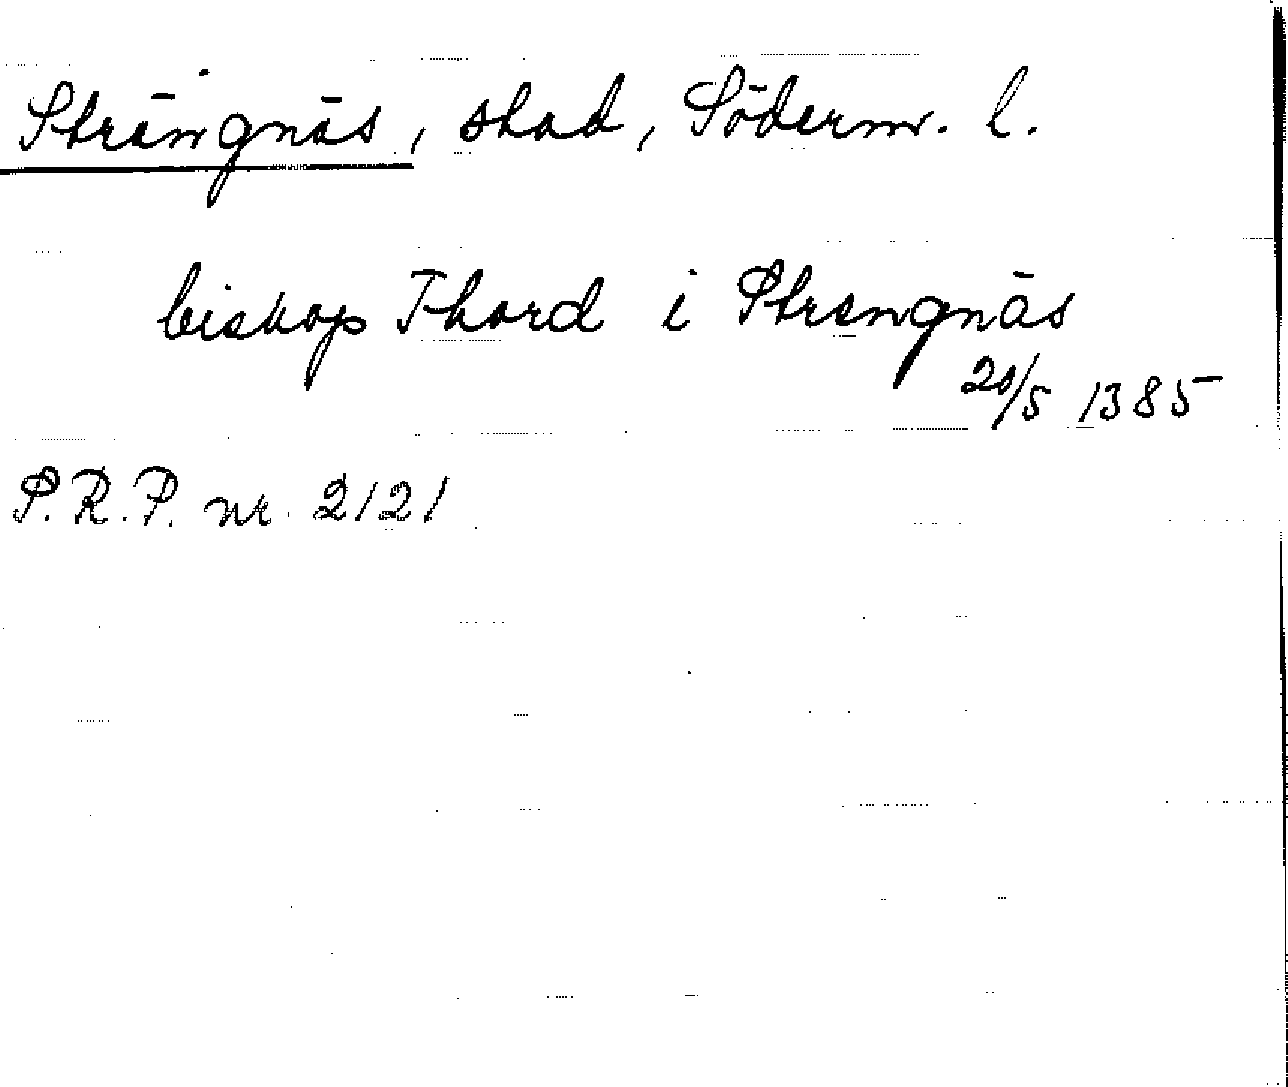 Strängnäs, stad, Söderm. l.
biskop Thord i Strengnäs
20/5 1385
S.R.P. nr. 2121